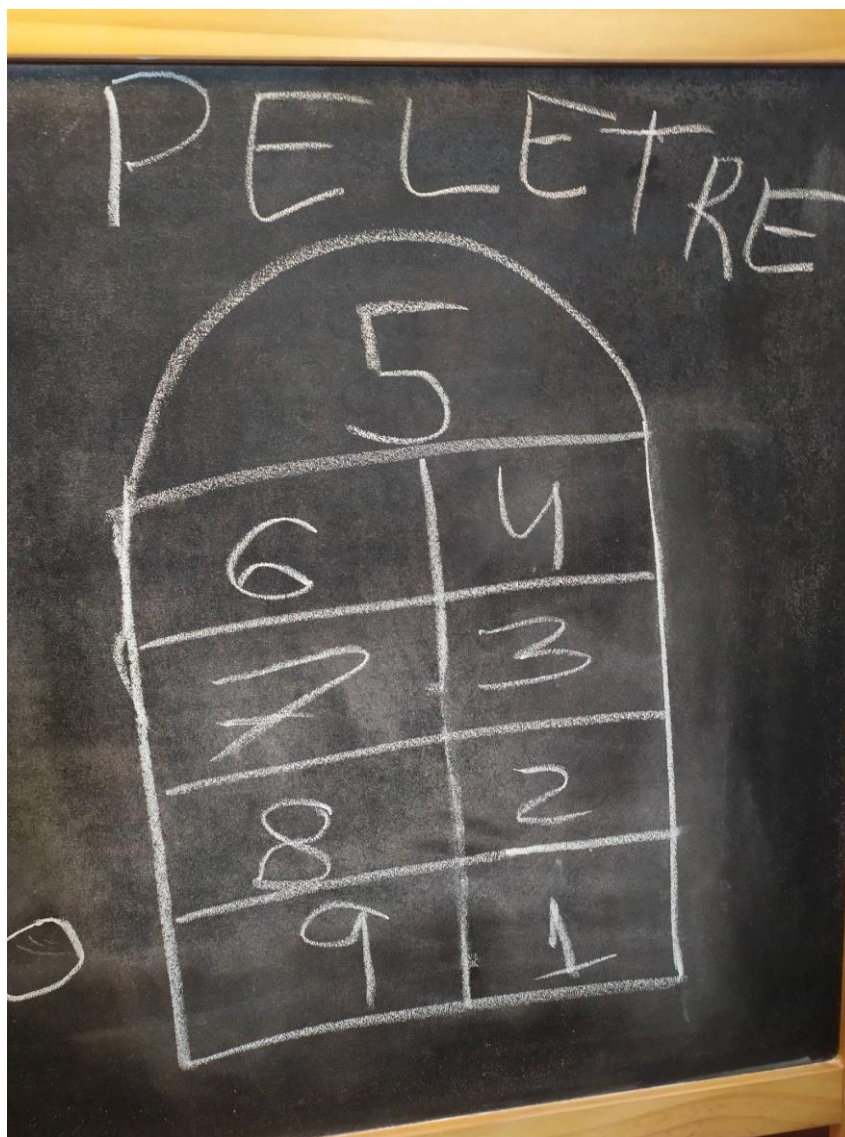 PELETRE
5
6 4
7 3
8 2
9 1